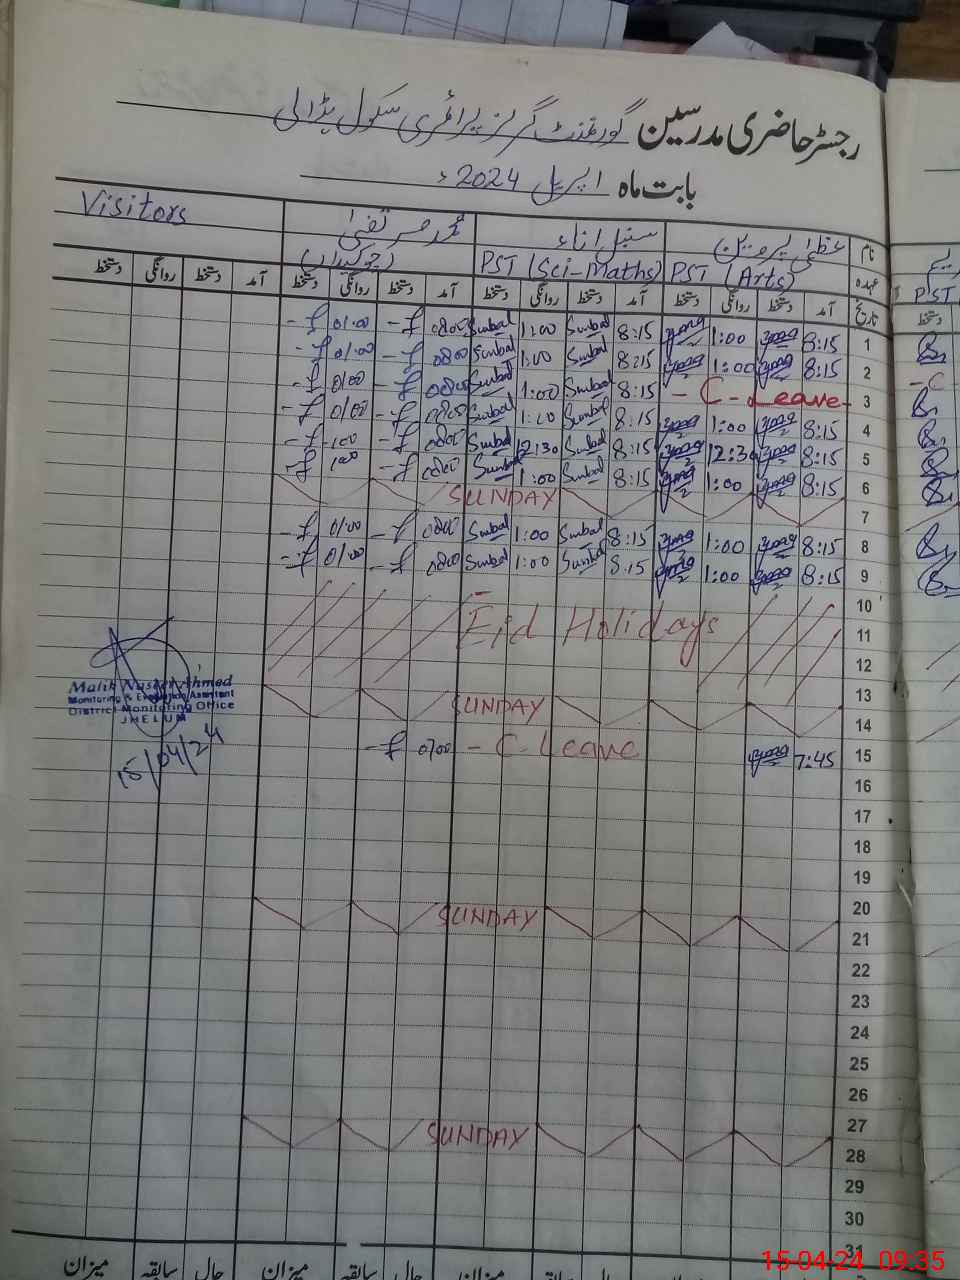 رجسٹر حاضری مدرسین گورنمنٹ گرلز پرائمری سکول بڈالی
بابت ماہ اپریل 2024ء
نام عظمیٰ پروین سنبل اناء محمد مرتضیٰ Visitors
عہدہ PST (Arts) PST (Sci-Maths) (چوکیدار)
تاریخ آمد دستخط روانگی دستخط آمد دستخط روانگی دستخط آمد دستخط روانگی دستخط آمد دستخط روانگی دستخط
PST
دستخط
1 8:15 1:00 8:15 Sunbal 1:00 Sunbal 0800 01:00
2 8:15 1:00 8:15 Sunbal 1:00 Sunbal 0800 01:00
3 - C - Leave - 8:15 Sunbal 1:00 Sunbal 0800 01:00
4 8:15 1:00 8:15 Sunbal 1:00 Sunbal 0800 01:00
5 8:15 12:30 8:15 Sunbal 12:30 Sunbal 0800 1:00
6 8:15 1:00 8:15 Sunbal 1:00 Sunbal 0800 1:00
7 SUNDAY
8 8:15 1:00 8:15 Sunbal 1:00 Sunbal 0800 01:00
9 8:15 1:00 8:15 Sunbal 1:00 Sunbal 0800 01:00
10
11 Eid Holidays
12
13
14 SUNDAY
15 7:45 - C - Leave
16
17
18
19
20
21 SUNDAY
22
23
24
25
26
27
28 SUNDAY
29
30
31
Malik Nusser Ahmed
Monitoring & Evaluation Assistant
District Monitoring Office
JHELUM
15/04/24
میزان سابقہ حال میزان سابقہ حال میزان
15-04-24 09:35